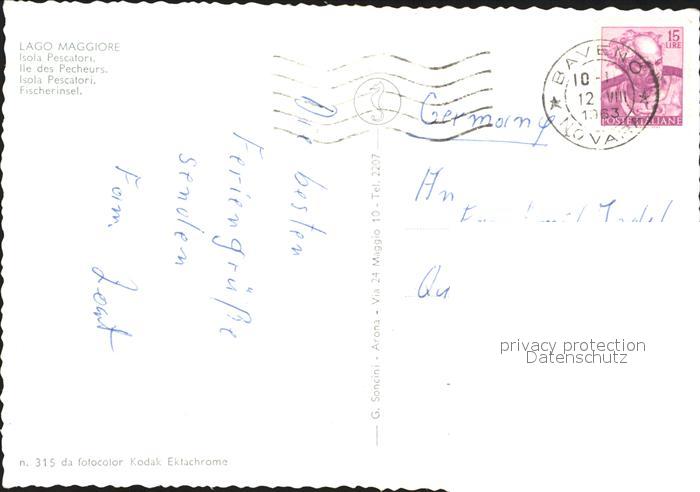 LAGO MAGGIORE
Isola Pescatori.
Ile des Pecheurs.
Isola Pescatori.
Fischerinsel.
Die besten
Feriengrüße
senden
Fam.
G. Soncini - Arona - Via 24 Maggio 10 - Tel. 2207
n. 315 da fotocolor Kodak Ektachrome
15
LIRE
POSTE ITALIANE
BAVENO
10-
12 VIII
1963
NOVARA
Germany
An
privacy protection
Datenschutz